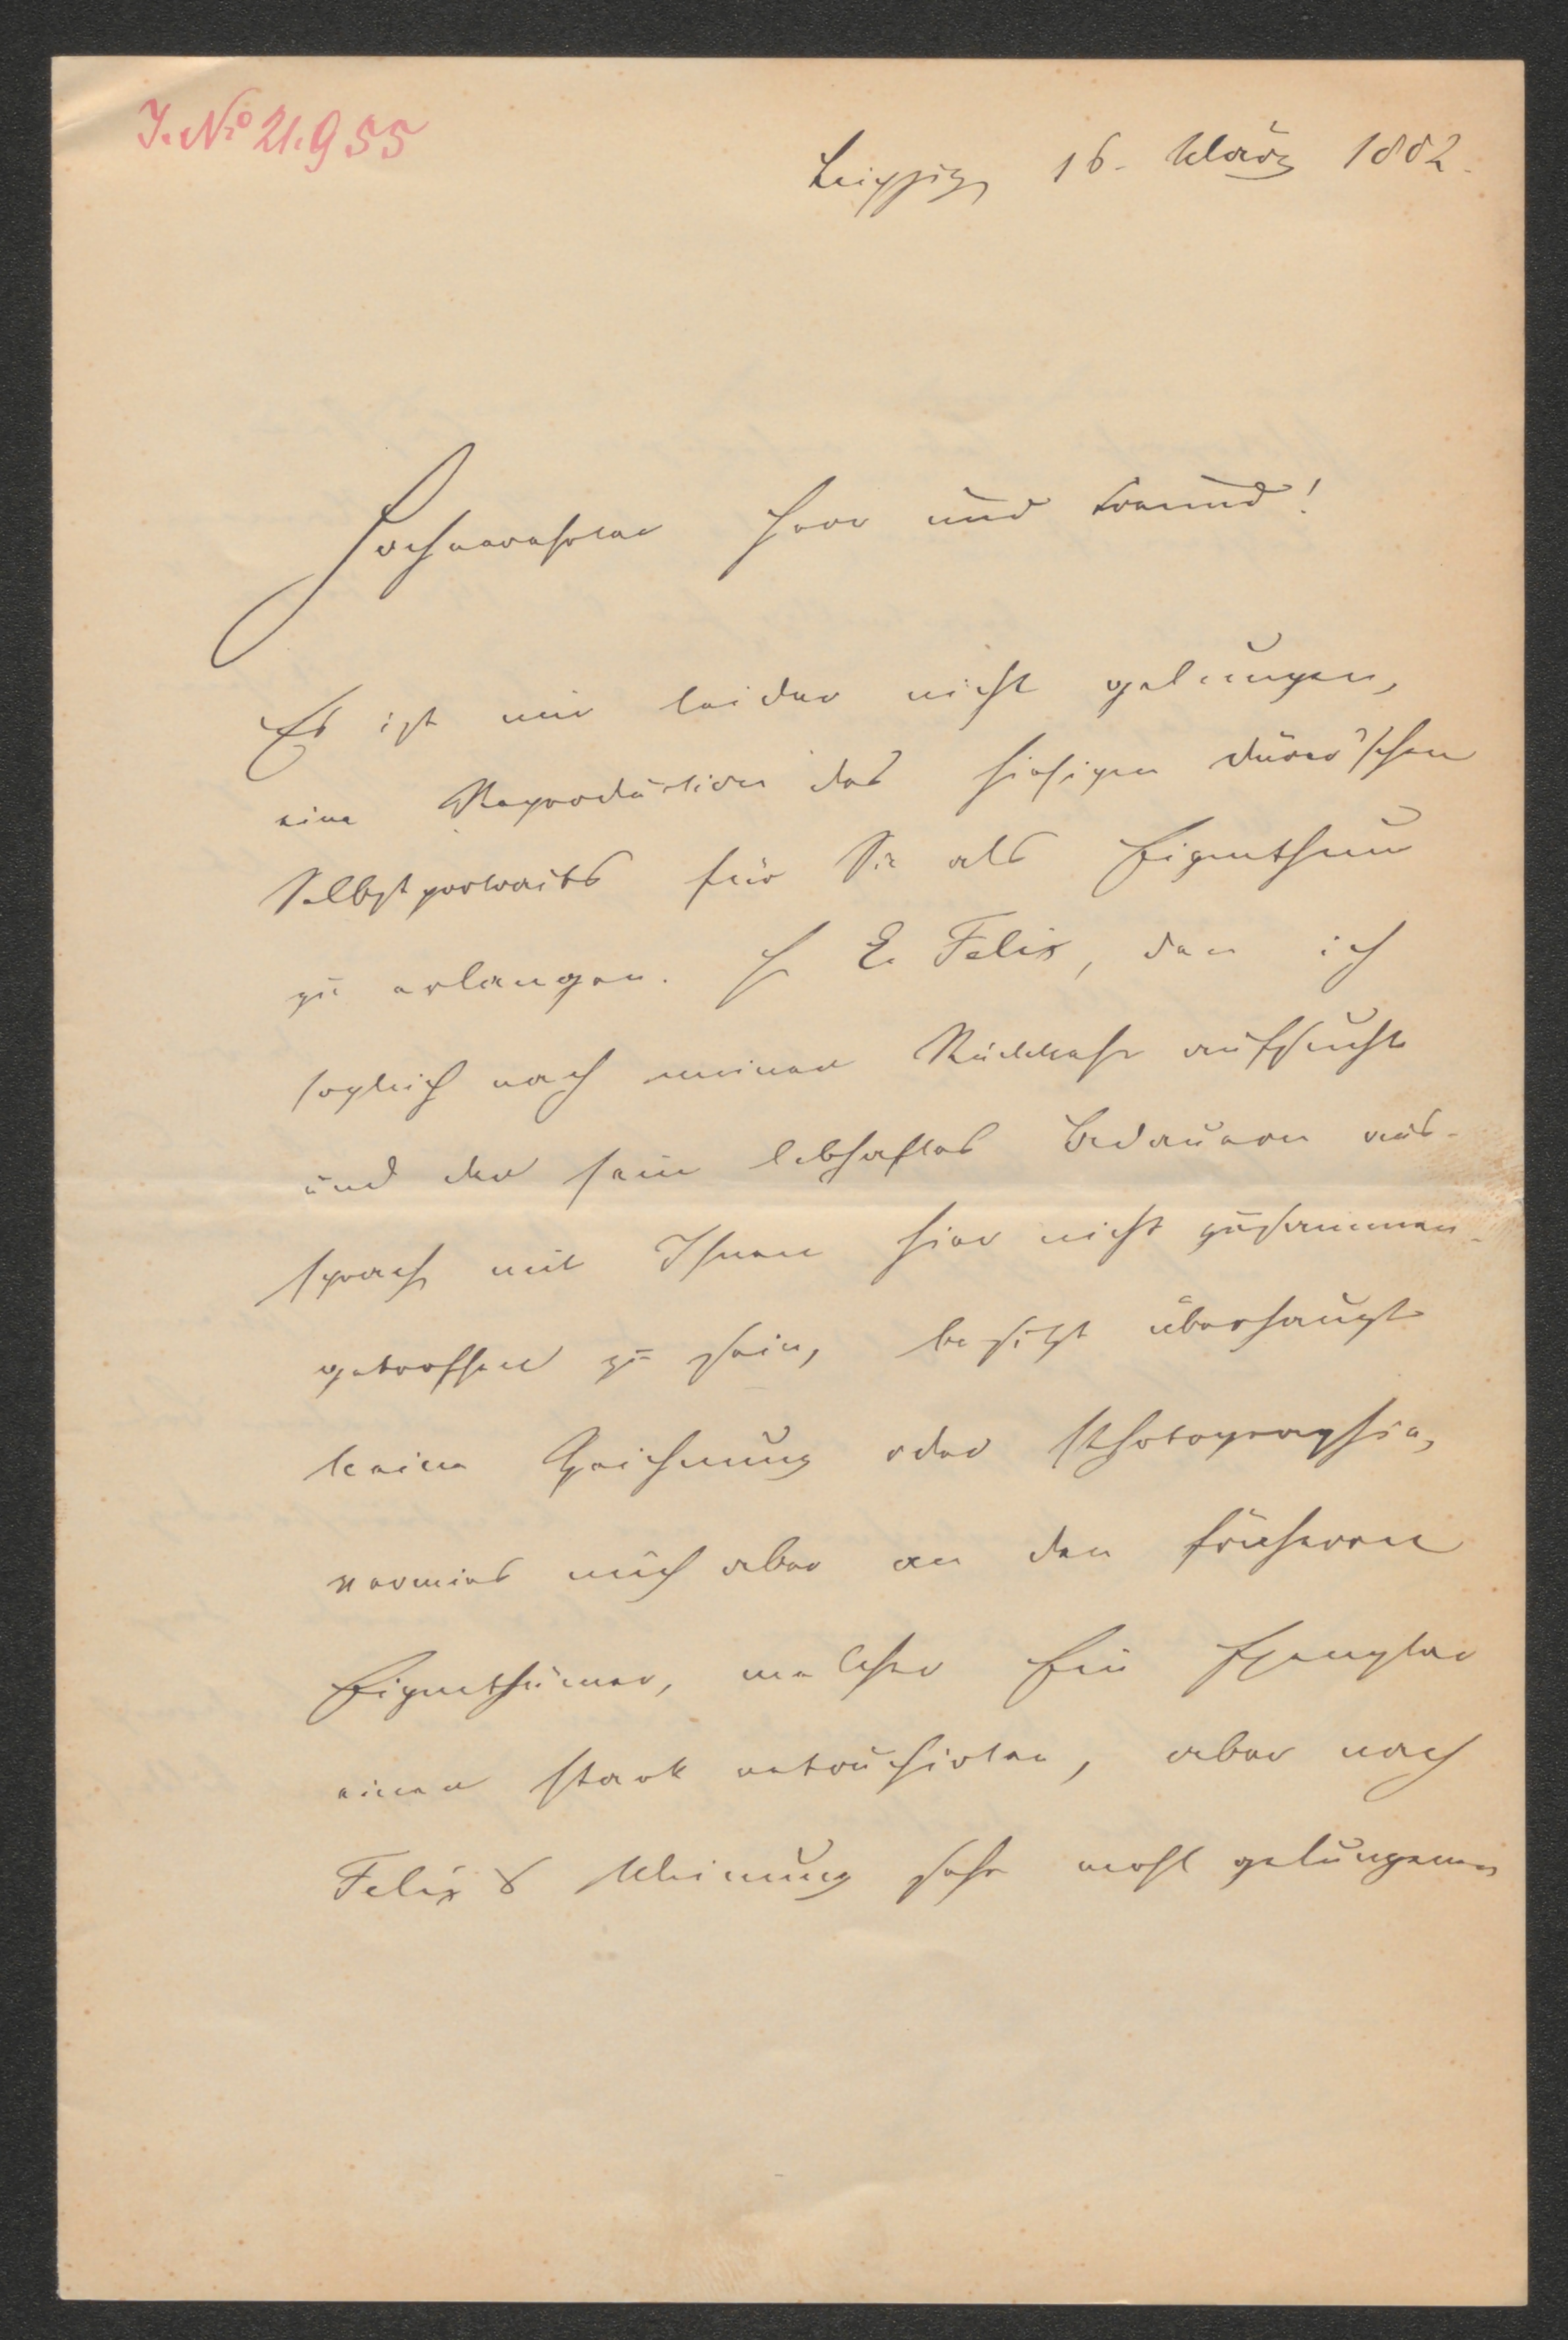 J. No 21.955
Leipzig 16. März 1882.
Hochverehrter Herr und Freund!
Es ist mir leider nicht gelungen,
eine Reproduction des hiesigen Dürer'schen
Selbstportraits für Sie als Eigenthum
zu erlangen. H E. Felix, den ich
sogleich nach meiner Rückkehr aufsuchte
und der sein lebhaftes Bedauern aus-
sprach mit Ihnen hier nicht zusammen-
getroffen zu sein, besitzt überhaupt
keine Zeichnung oder Photographie,
verwies mich aber an den früheren
Eigenthümer, welcher Ein Exemplar
einer stark retouchirten, aber nach
Felix's Meinung sehr wohl gelungenen